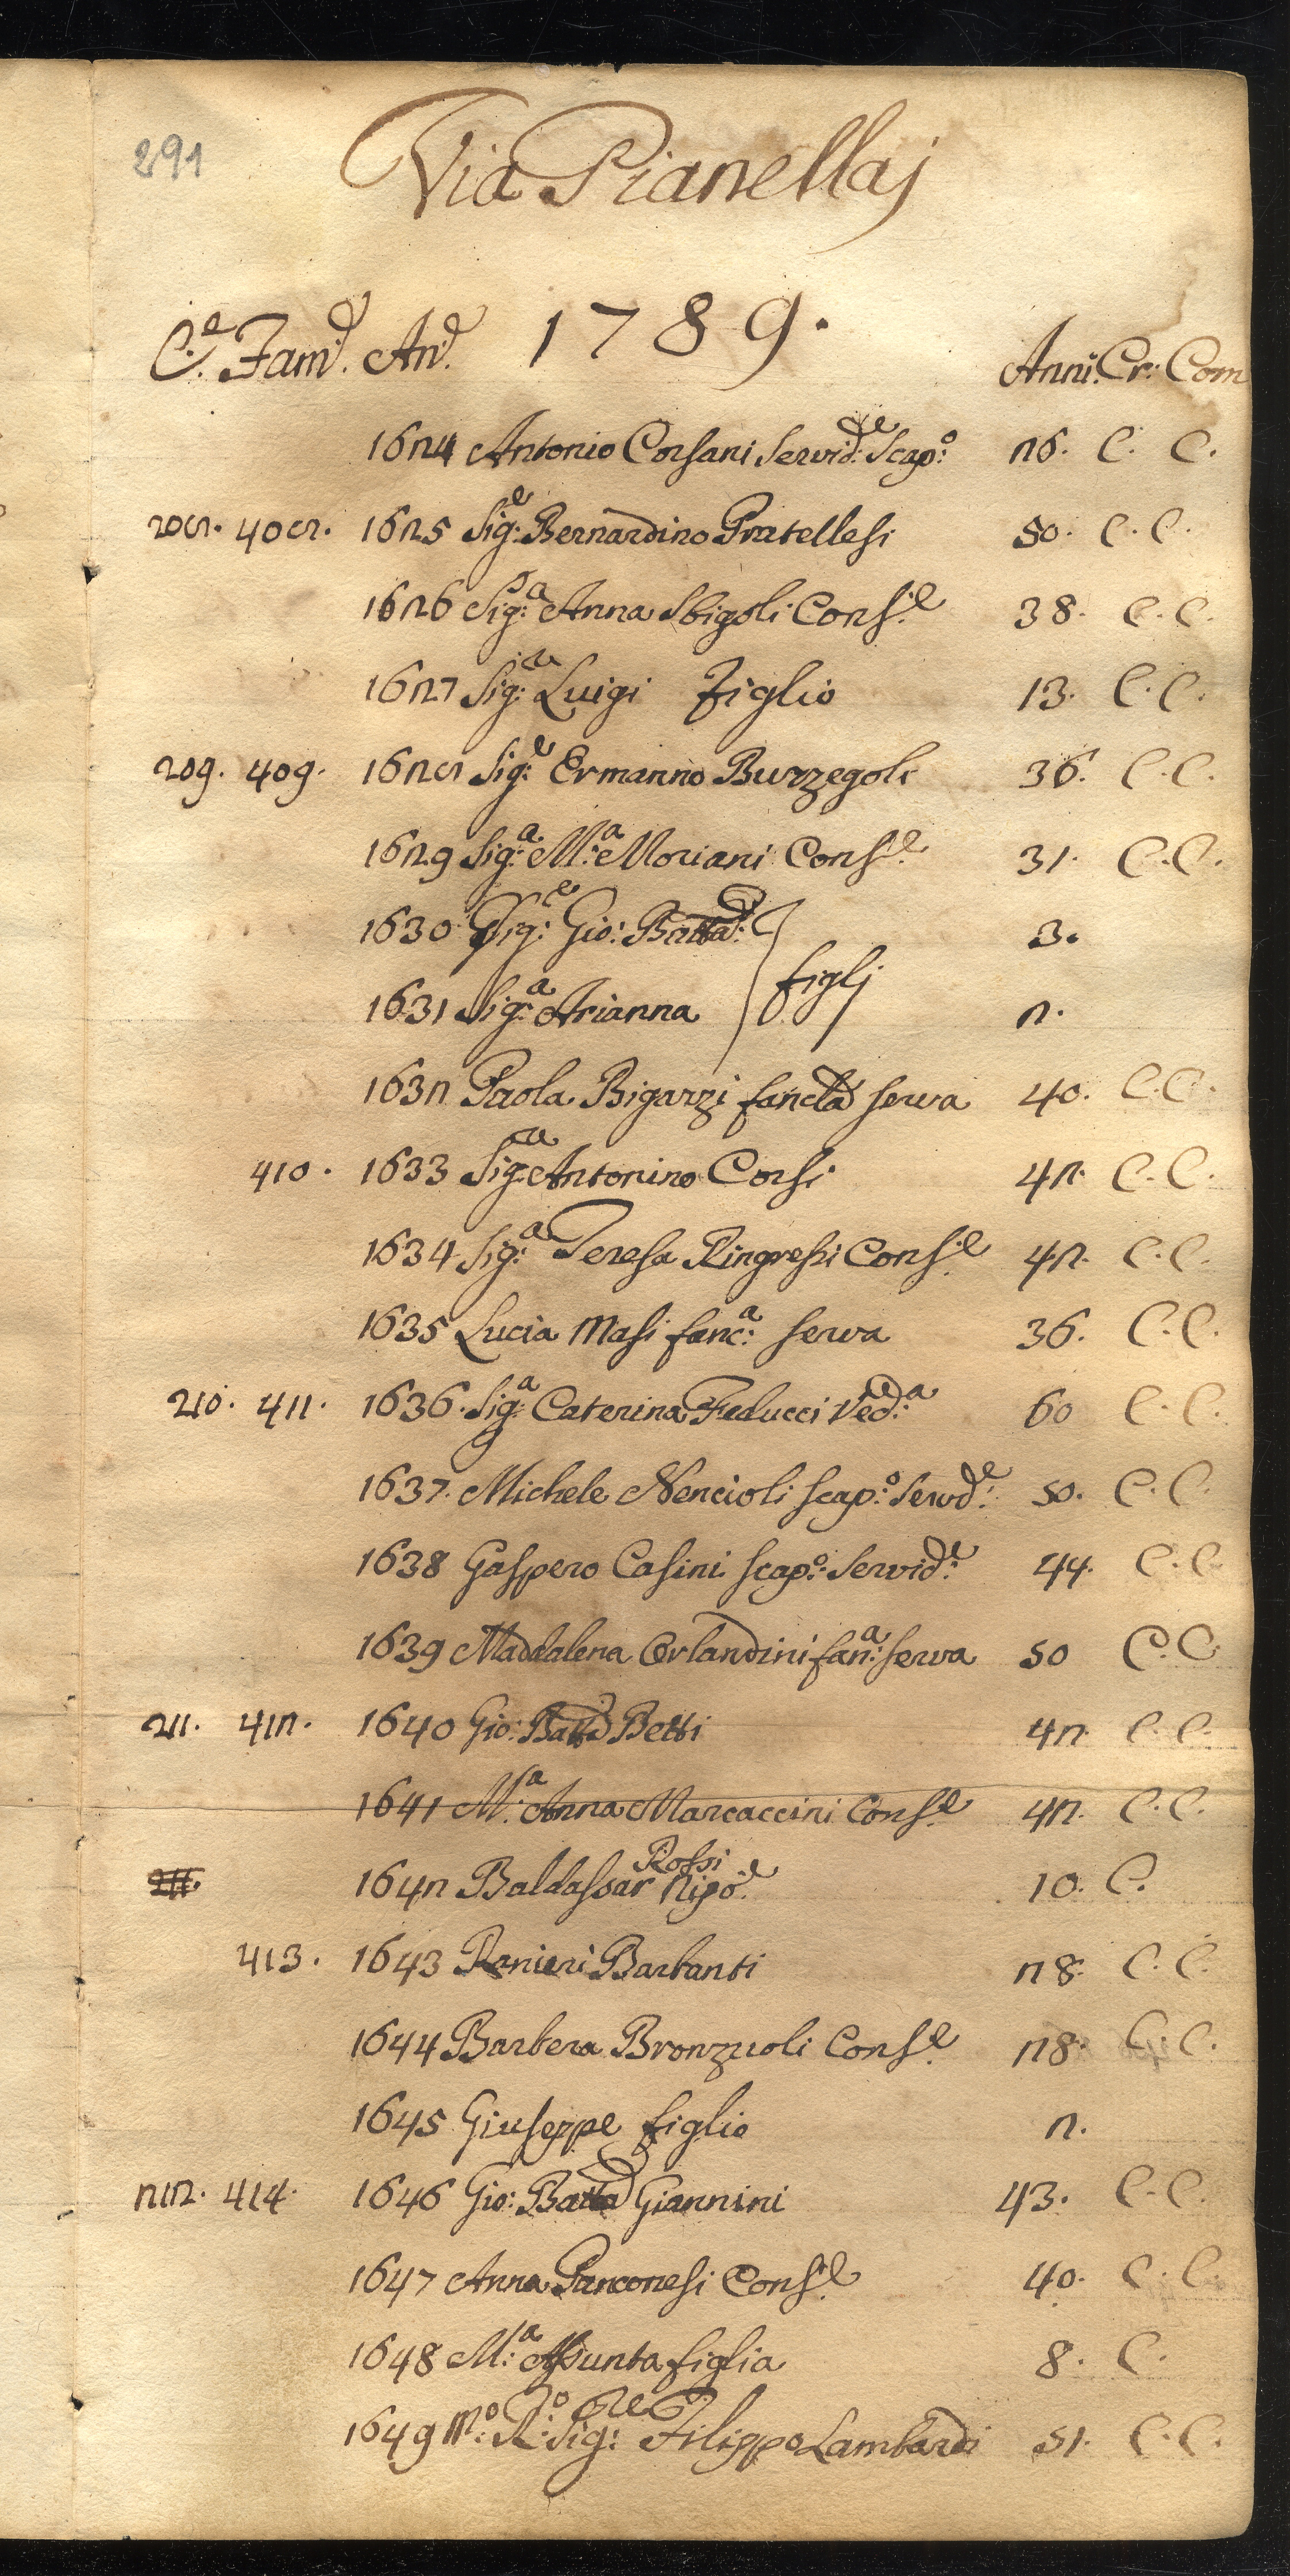 291
Via Pianellaj
C.e Fam.e An.e 1789. Anni. Cr: Com
1624 Antonio Corsani Servid:e Scap:o 26. C. C.
208. 408. 1625 Sig:e Bernardino Pratellesi 50. C. C.
1626 Sig:a Anna Sbigoli Cons:e 38. C. C.
1627 Sig:re Luigi Figlio 13. C. C.
209. 409. 1628 Sig:e Ermanno Burzegoli 36. C. C.
1629 Sig:a M:a Moriani Cons:e 31. C. C.
1630 Sig:e Gio: Batta: 3.
figlj
1631 Sig:a Arianna 2.
1632 Paola Bigazzi fancla serva 40. C. C.
410. 1633 Sig:re Antonino Corsi 42. C. C.
1634 Sig:a Teresa Ringressi Cons:e 42. C. C.
1635 Lucia Masi fanc:a serva 36. C. C.
210. 411. 1636. Sig:a Caterina Feducci Ved:a 60 C. C.
1637. Michele Nencioli scap:o Serv:de 50. C. C.
1638 Gaspero Casini scap:o Servid:e 44. C. C.
1639 Maddalena Orlandini fan:a serva 50 C. C.
211. 412. 1640 Gio: Batta Betti 42. C. C.
1641 M:a Anna Marcaccini Cons:e 42. C. C.
Rossi
211. 1642 Baldassar Nipo:e 10. C.
413. 1643 Ranieri Barbanti 28. C. C.
1644 Barbera Bronzuoli Cons:e 28. C. C.
1645 Giuseppe figlio 2.
212. 414. 1646 Gio: Batta Giannini 43. C. C.
1647 Anna Panconesi Cons:e 40. C. C.
1648 M:a Assunta figlia 8. C.
1649 M:o R:do Sig:re Filippo Lambardi 51. C. C.